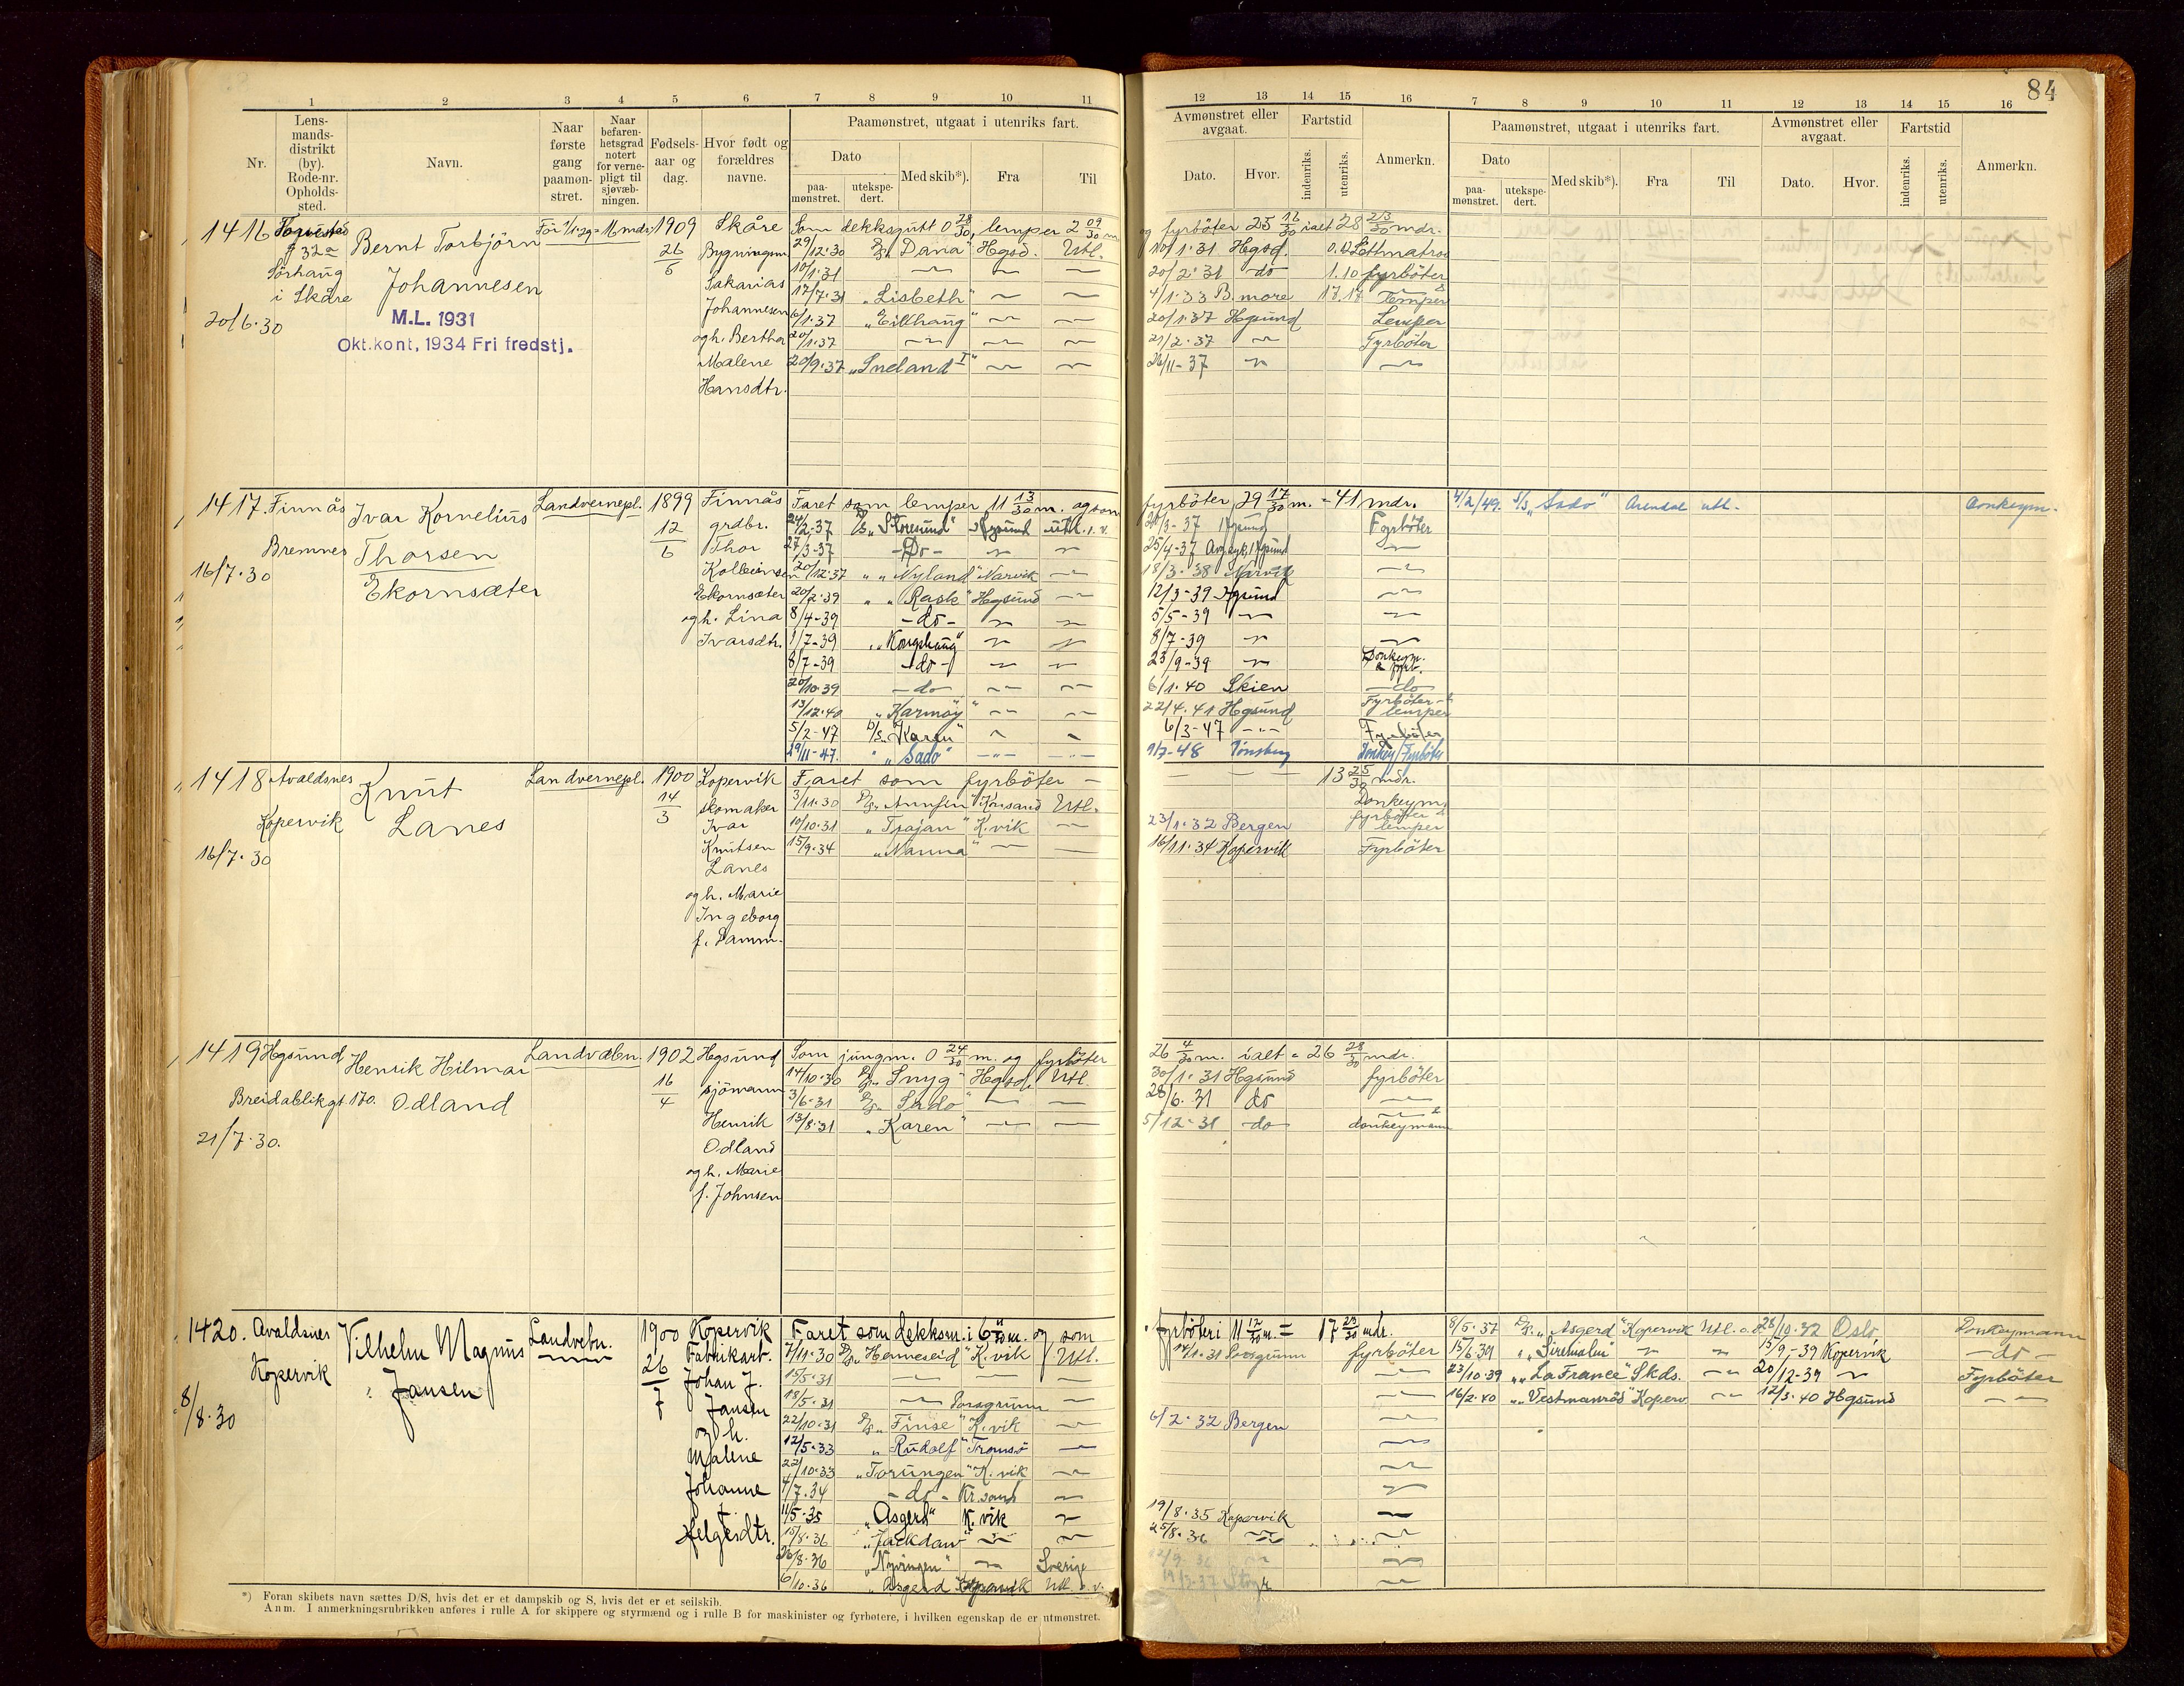 84
1 2 3 4 5 6 7 8 9 10 11
12 13 14 15 16 7 8 9 10 11 12 13 14 15 16
Nr.
Lens-
mands-
distrikt
(by).
Rode-nr.
Opholds-
sted.
Navn.
Naar
første
gang
paamøn-
stret.
Naar
befaren-
hetsgrad
notert
for verne-
pligt til
sjøvæb-
ningen.
Fødsels-
aar og
dag.
Hvor født og
forældres
navne.
Paamønstret, utgaat i utenriks fart.
Dato
paa-
mønstret.
utekspe-
dert.
Med skib*).
Fra
Til
Avmønstret eller
avgaat.
Dato.
Hvor.
Fartstid
indenriks.
utenriks.
Anmerkn.
Paamønstret, utgaat i utenriks fart.
Dato
paa-
mønstret.
utekspe-
dert.
Med skib*).
Fra
Til
Avmønstret eller
avgaat.
Dato.
Hvor.
Fartstid
indenriks.
utenriks.
Anmerkn.
1416
Torvestad
32a
Sörhaug
i Skåre
20/6·30
Bernt Torbjörn
Johannesen
M.L. 1931
Okt.kont, 1934 Fri fredstj.
För 1/1·29 = 16 mndr.
1909
26
6
Skåre
Bygningsm
Sakarias
Johannesen
og h. Berthe
Malene
Hansdtr.
Som dekksgutt 0 28/30, lemper 2 09/30 m
og fyrböter 25 16/30 ialt 28 23/30 mdr.
29/12·30 D/S „Dana" Hgsd. Utl.
10/1·31 Hgsd. Lettmatros
10/1·31 — — —
20/2·31 do 1.10 fyrböter
17/7·31 „Lisbeth" — —
4/1·33 B.more 17.17 lemper
6/1·37 „Eikhaug" — —
20/1·37 Hgsund Lemper
20/1·37 — — —
21/2·37 — Fyrböter
20/9·37 „Sneland I" — —
26/11-37 — —
1417.
Finnås
Bremnes
16/7·30
Ivar Kornelius
Thorsen
Ekornsæter
Landvernepl.
1899
12
6
Finnås
grdbr.
Thor
Kolbeinsen
Ekornsæter
og h. Lina
Ivarsdtr.
Faret som lemper 11 13/30 m. og som
fyrböter 29 17/30 m. = 41 mdr.
24/2-37 D/S „Storesund" Hgsund utl. i. v.
Hgsund Fyrböter
27/3-37 - Do - — —
25/4-37 Hgsund —
20/12·37 „ „ Nyland" Narvik —
18/3·38 Narvik —
20/2·39 „ „ Rask" Hgsund —
12/3-39 Hgsund —
8/4-39 - do - — —
5/5-39 — —
1/7-39 „Kongshaug" — —
8/7-39 — —
8/7-39 - do - — —
23/9-39 — Donkeym.
& fyrb.
20/10·39 - do — —
6/1·40 Skien - do
13/12·40 „Karmöy" — —
22/4·41 Hgsund Fyrböter &
lemper
5/2-47 D/S „Karen" — —
6/3-47 - „ - Fyrböter
29/11-47. „ „Sado" - „ - - „ -
9/7-48 Tönsberg Donkey/Fyrböter
4/2/49. S/S „Sado" Arendal utl. Donkeym.
1418
Avaldsnes
Kopervik
16/7·30
Knut
Lanes
Landvernepl.
1900
14
3
Kopervik
skomaker
Ivar
Knutsen
Lanes
og h. Marie
Ingeborg
f. Lamm.
Faret som fyrböter —
— — 13 25/30 mdr.
3/11·30 D/S „Annfin" Krisand Utl.
Donkeym.
10/10·31 „Trajan" K.vik —
23/1·32 Bergen fyrböter &
lemper
15/9·34 „Nanna" — —
16/11·34 Kopervik Fyrböter
1419
Hgsund
Breidablikgt 170.
21/7·30.
Henrik Hilmar
Odland
Landvæbn.
1902
16
4
Hgsund
sjömann
Henrik
Odland
og h. Marie
f. Johnsen
Som jungm. 0 24/30 m. og fyrböter
26 4/30 m. ialt = 26 28/30 mdr.
14/10·30 D/S „Snyg" Hgsd. Utl.
30/1·31 Hgsund fyrböter
3/6·31 D/S „Sado" — —
28/6·31 do —
13/8·31 „Karen" — —
5/12·31 -do- —&
donkeymann
1420.
Avaldsnes
Kopervik
8/8·30
Vilhelm Magnus
Jansen
Landvebn.
1900
26
7
Kopervik
Fabrikarb.
Johan J.
Jansen
og h.
Malene
Johanne
Helgesdtr.
Faret som dekksm. i 6 11/30 m. og som
fyrböter i 11 12/30 m = 17 23/30 mdr.
7/11·30 D/S „Henneseid" K.vik Utl.
14/1·31 Porsgrunn fyrböter
15/5·31 — — —
18/5·31 — Porsgrunn —
22/10·31 D/S „Finse" K.vik —
6/2·32 Bergen —
12/5·33 „Rudolf" Tromsö —
22/10·33 „Torungen" K.vik —
4/7·34 - do - Kr.sand —
11/5·35 „Asgerd" K.vik —
19/8·35 Kopervik —
15/8·36 „Jackdaw" — —
25/8·36 — —
26/8·36 „Nyvingen" — Sverige
6/10·36 „Asgerd Utl. o.v.
8/5·37 D/S „Asgerd" Kopervik Utl. 28/10·37 Oslo, Donkeymann
15/6·39 „ „Sirehalm" — — 15/9,-39 Kopervik - do -
23/10·39 „ „La France" Skds. — 20/12-39 — Fyrböter
16/2·40 „ „Vestmanröd" Koperv. — 12/3·40 Hgsund —
*) Foran skibets navn sættes D/S, hvis det er et dampskib og S, hvis det er et seilskib.
Anm. I anmerkningsrubrikken anføres i rulle A for skippere og styrmænd og i rulle B for maskinister og fyrbøtere, i hvilken egenskap de er utmønstret.